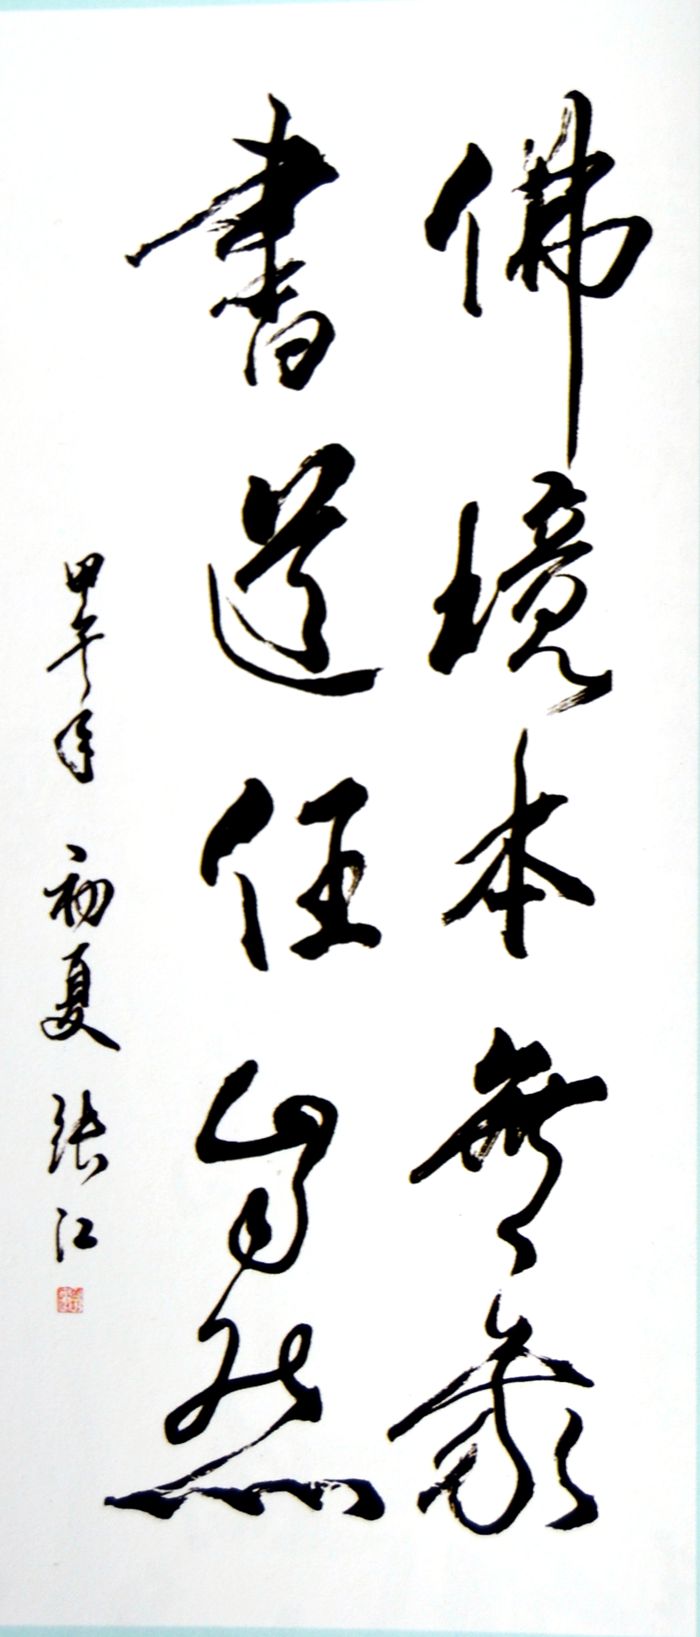 佛境本無象
書道任然
甲午年初夏張江